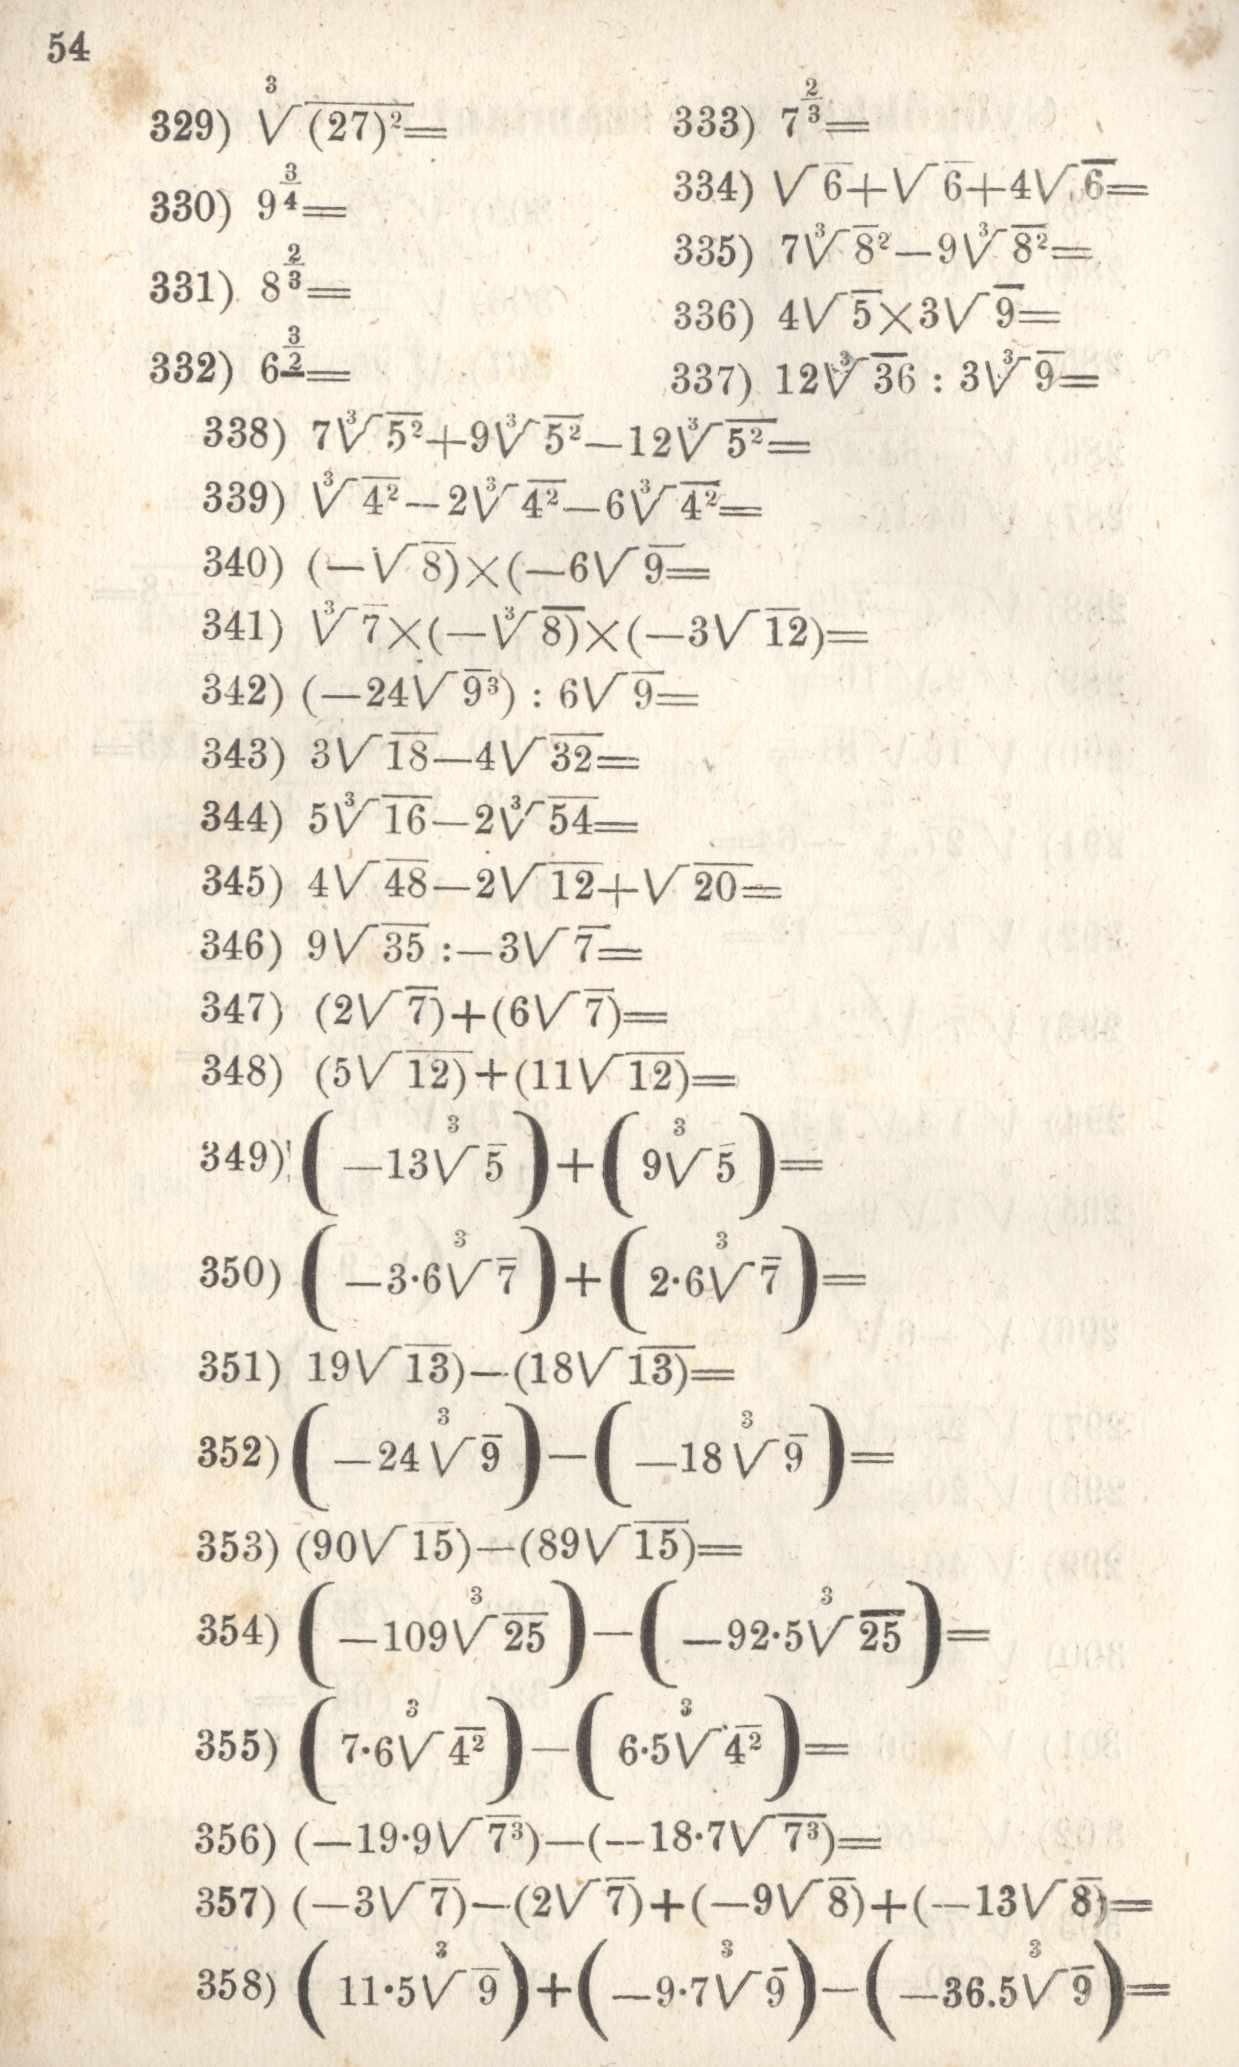 54
329) ∛(27)²=
330) 9^(3/4)=
331) 8^(2/3)=
332) 6^(3/2)=
333) 7^(2/3)=
334) √6+√6+4√6=
335) 7∛8²—9∛8²=
336) 4√5×3√9=
337) 12∛36 : 3∛9=
338) 7∛5²+9∛5²—12∛5²=
339) ∛4²—2∛4²—6∛4²=
340) (—√8)×(—6√9=
341) ∛7×(—∛8)×(—3√12)=
342) (—24√9³) : 6√9=
343) 3√18—4√32=
344) 5∛16—2∛54=
345) 4√48—2√12+√20=
346) 9√35 :—3√7=
347) (2√7)+(6√7)=
348) (5√12)+(11√12)=
349) (—13∛5)+(9∛5)=
350) (—3·6∛7)+(2·6∛7)=
351) 19√13)—(18√13)=
352) (—24∛9)—(—18∛9)=
353) (90√15)—(89√15)=
354) (—109∛25)—(—92·5∛25)=
355) (7·6∛4²)—(6·5∛4²)=
356) (—19·9√7³)—(—18·7√7³)=
357) (—3√7)—(2√7)+(—9√8)+(—13√8)=
358) (11·5∛9)+(—9·7∛9)—(—36.5∛9)=